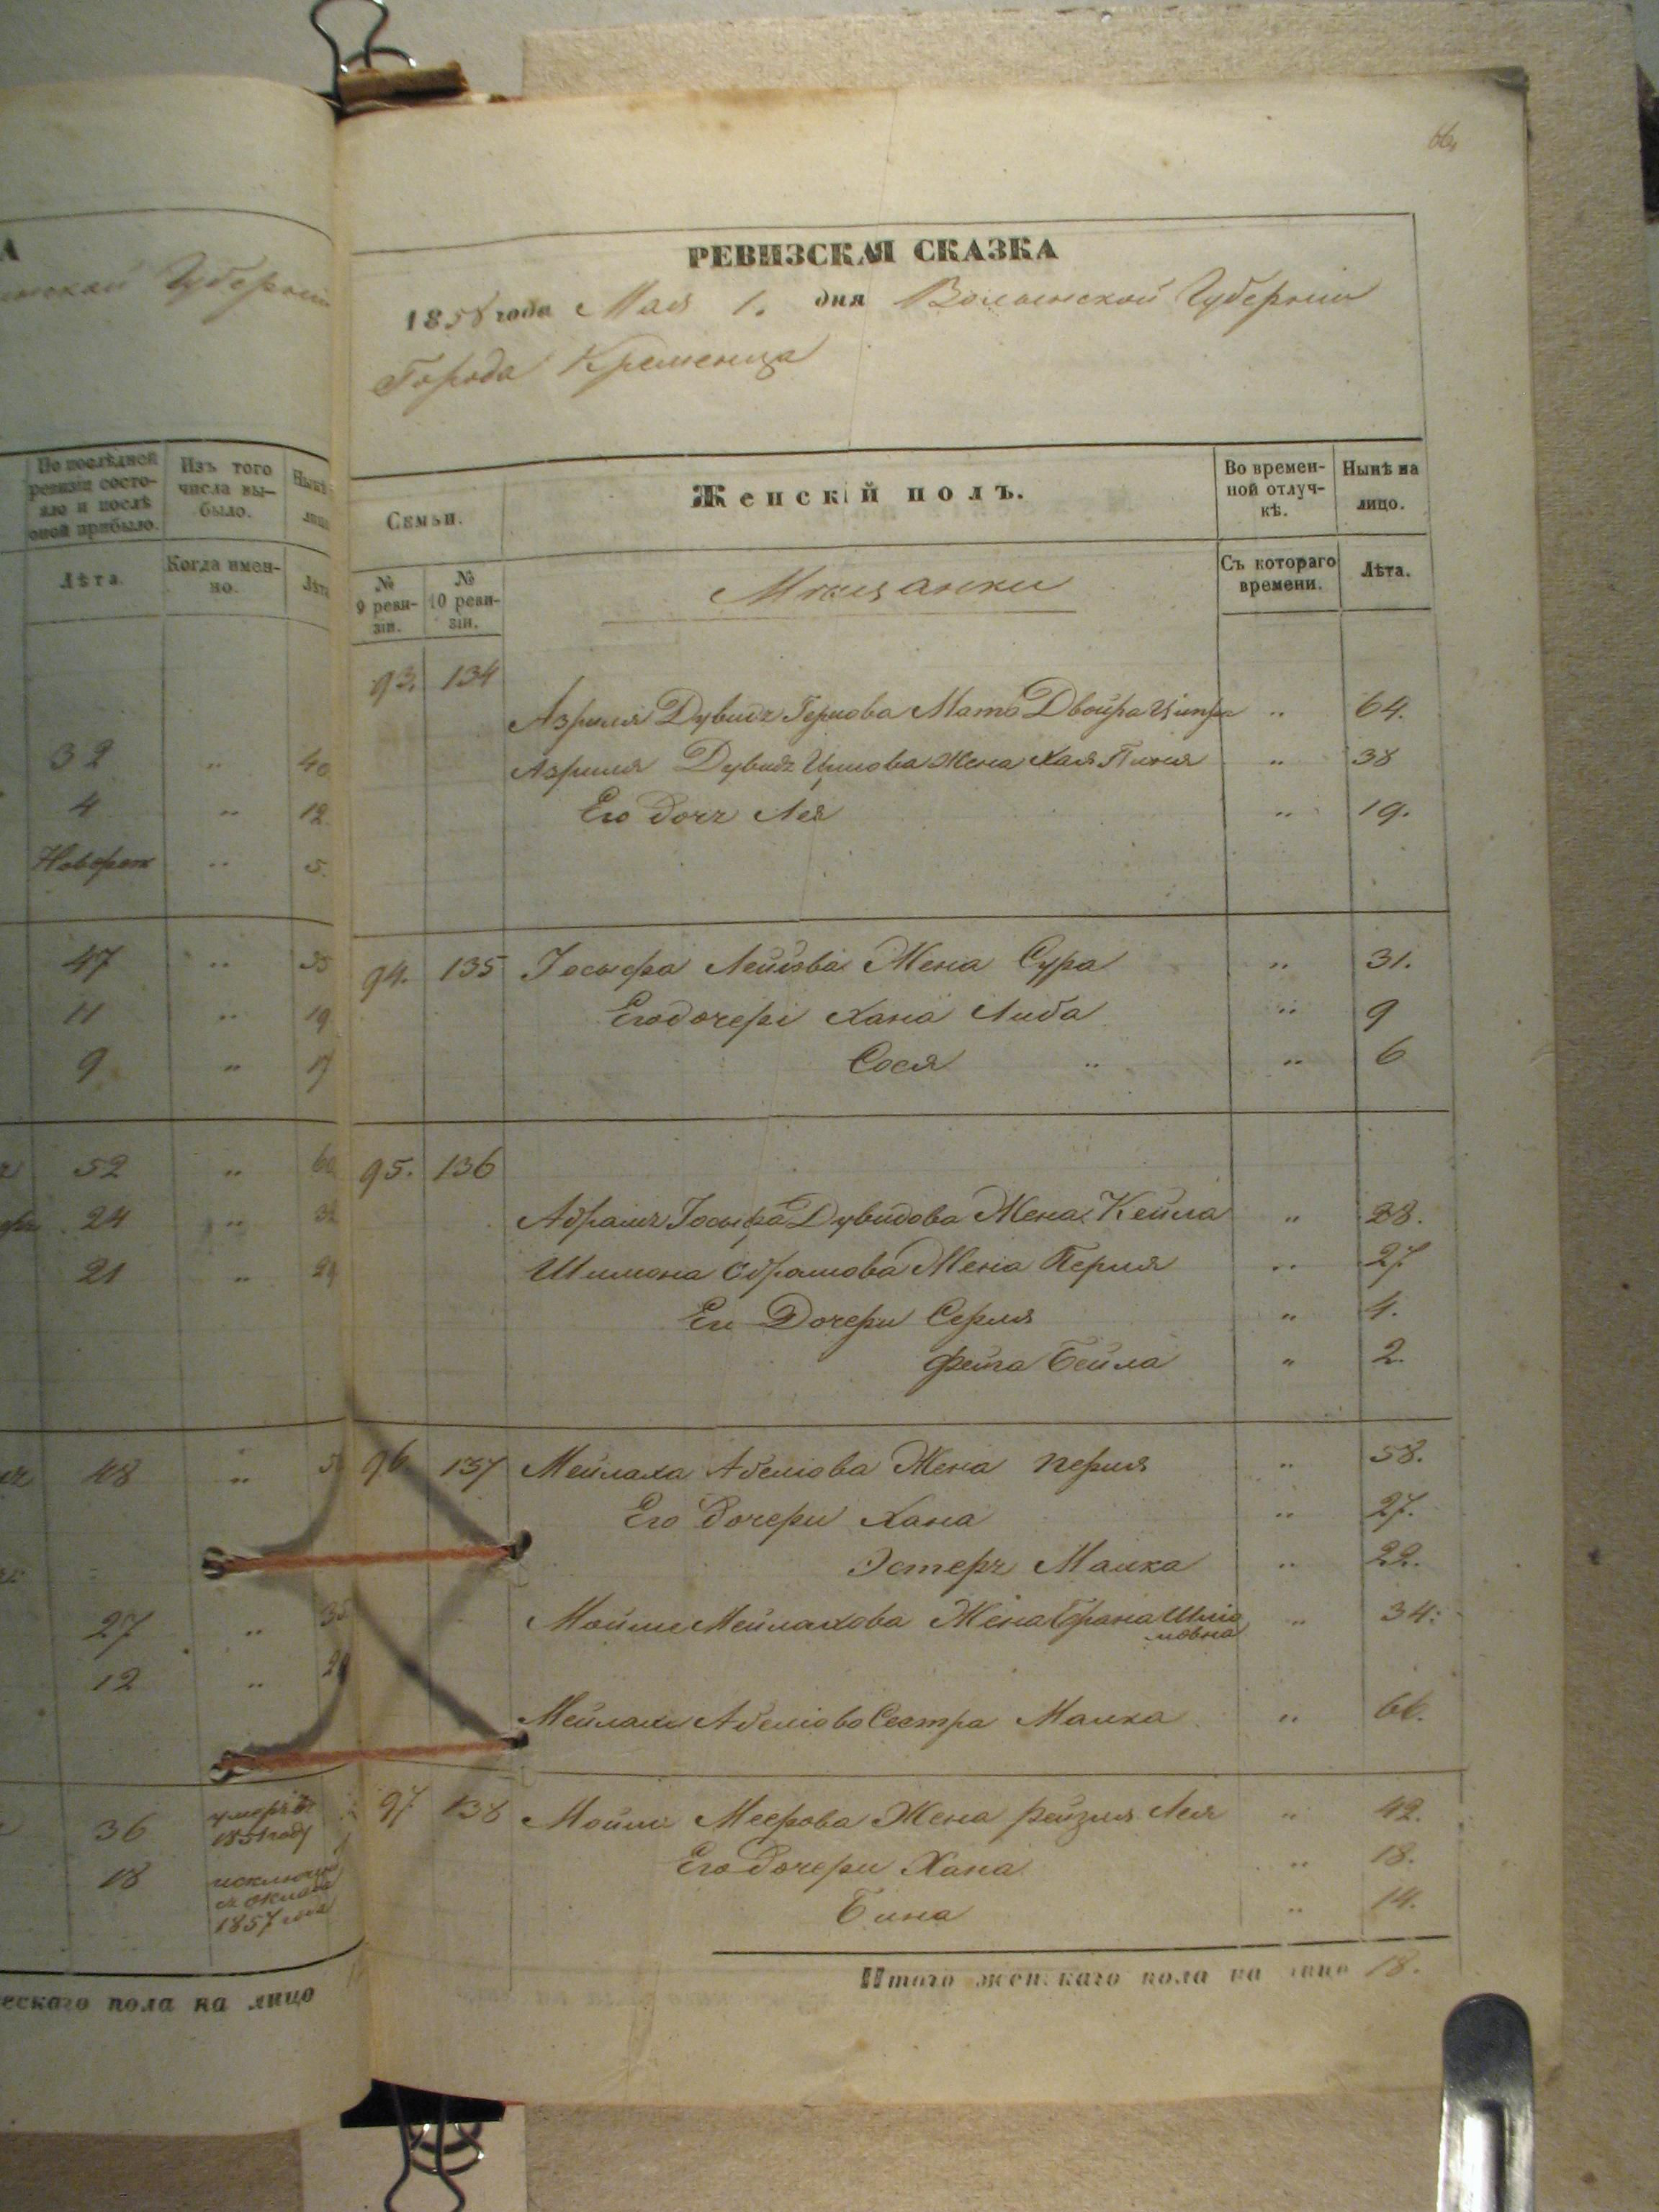 А
Губерніи
По послѣдней
ревизіи состо-
яло и послѣ
оной прибыло.
Изъ того
числа вы-
было.
Нынѣ
лицо
Лѣта.
Когда имен-
но.
Лѣта
32 „ 40
4 „ 12.
Новорож „ 5.
47 „
11 „ 19
9 „ 17
52 „ 60
24 „ 32
21 „ 29
48 „
27 „ 35
12 „ 20
36 умеръ въ
1851 году
18
1857 года
ескаго пола на лицо
РЕВИЗСКАЯ СКАЗКА
1858 года Мая 1. дня Волынской Губерніи
Города Кременца
Семьи.
Женскій полъ.
Во времен-
ной отлуч-
кѣ.
Нынѣ на
лицо.
№
9 реви-
зіи.
№
10 реви-
зіи.
Мѣщанки
Съ котораго
времени.
Лѣта.
93. 134
Азриля Дувидъ Мать Двойра Ципра „ 64.
Азриля Дувидъ Жена Хая „ 38
Его дочь Лея „ 19.
94. 135 Іосьфа Лейбова Жена Сура „ 31.
Его дочери Хана Либа „ 9
Сося „ „ 6
95. 136
Абрамъ Іосьфа Дувидова Жена Кейла „ 28.
Шимона Абрамова Жена Перля „ 27
Ег Дочери Серля „ 4.
Фейга Бейла „ 2.
96 137 Мейлаха Абелюва Жена Перля „ 58.
Его Дочери Хана „ 27.
Эстеръ Малка „ 22.
Мойше Мейлахова Жена Брана Шліо
мовна „ 34.
Мейлаха Абеліова Сестра Малка „ 66.
97 138 Мойше Меерова Жена Рейзля Лея „ 42.
Его Дочери Хана „ 18.
Бина „ 14.
Итого женскаго пола на лицо 18.